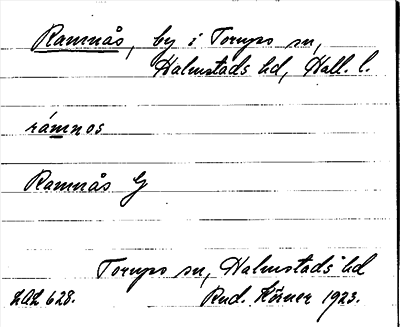 Ramnås, by i Torups sn,
Halmstads hd, Hall. l.
rámnos
Ramnås G
Torups sn, Halmstads hd
LAL 628. Rud. Körner 1923.